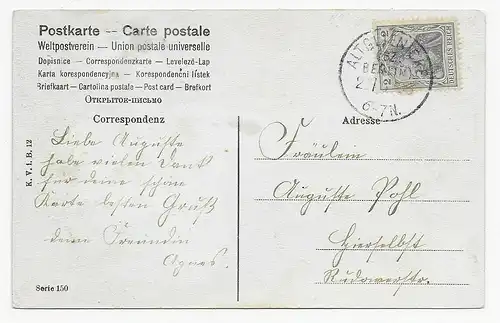 Postkarte -- Carte postale
Weltpostverein -- Union postale universelle
Dopisnice -- Correspondenzkarte -- Levelező-Lap
Karta korespondencyjna -- Korespondenčni lístek
Briefkaart -- Cartolina postale -- Post card -- Brefkort
Открытое-письмо
Correspondenz
Adresse
DEUTSCHES REICH
BERLIN
6-7N.
K. V. i. B. 12
Liebe Auguste
habe vielen Dank
für deine schöne
Karte besten Gruß
deine Freundin
Agnes.
Fräulein
Auguste Pohl
Hierselbst
Rudowerstr.
Serie 150